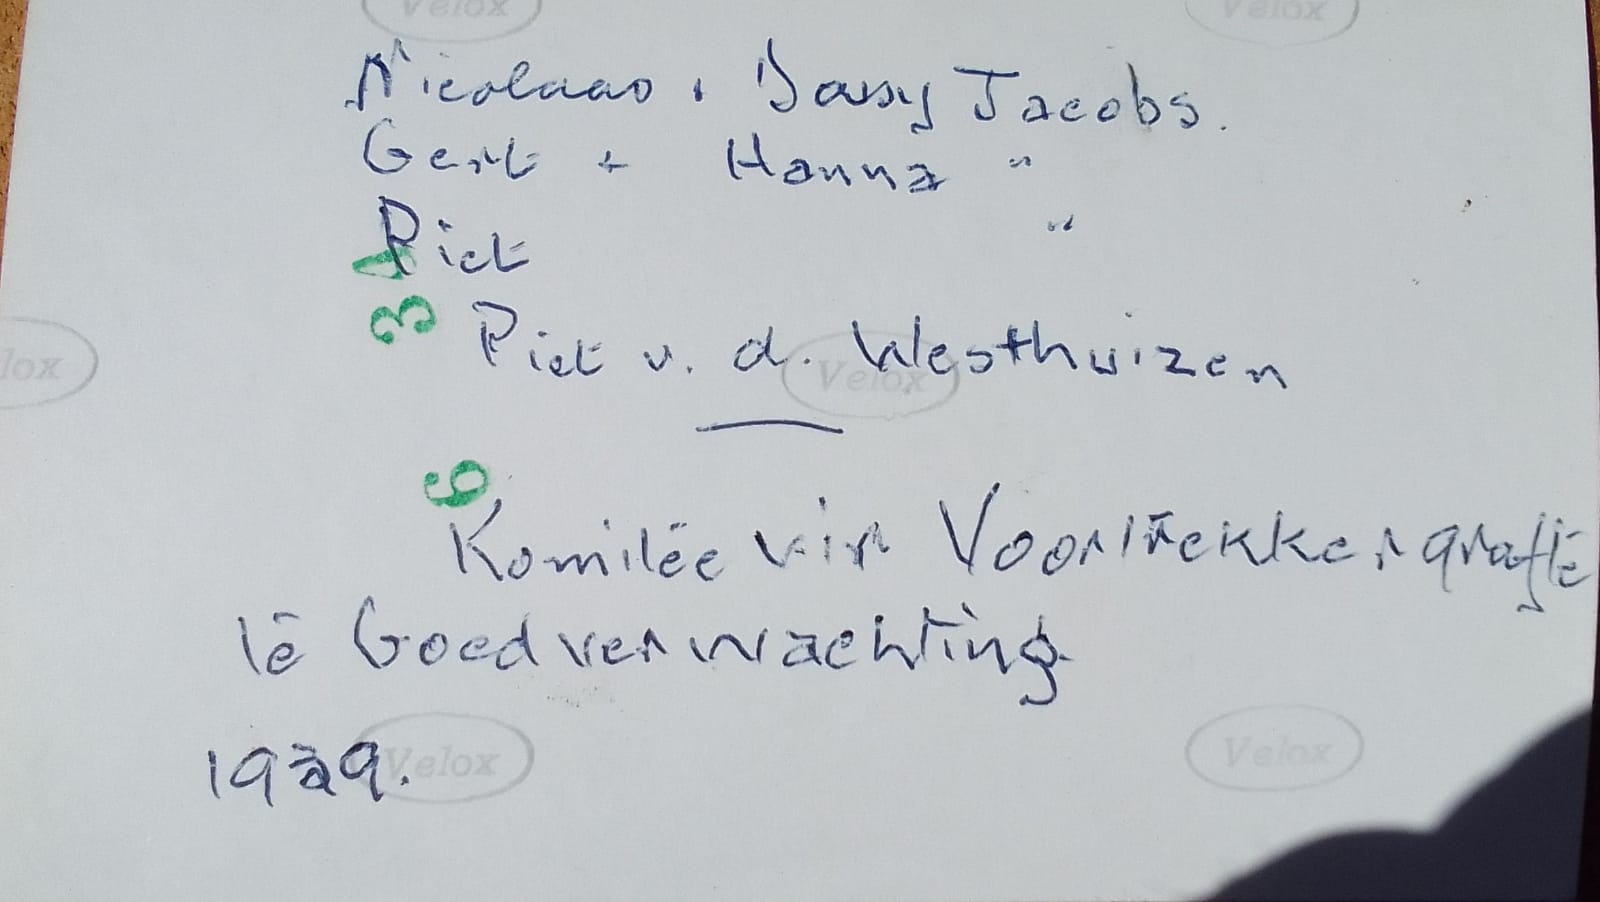 Velox Velox
Nicolaas + Dassy Jacobs.
Gert + Hanna "
Piet "
34
Piet v. d. Westhuizen
lox Velox
6
Komitee vir Voortrekkergrafte
te Goedverwachting
19 9.
Velox Velox